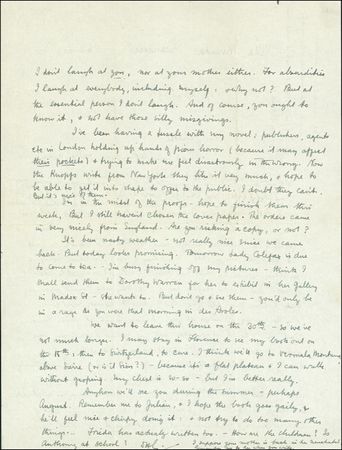 I don't laugh at you, nor at your mother either. For absurdities
I laugh at everybody, including myself: & why not? But at
the essential person I don't laugh. And of course, you ought to
know it, & not have those silly misgivings.
I've been having a tussle with my novel: publishers, agents
etc in London holding up hands of pious horror (because it may affect
their pockets) & trying to make me feel disastrously in the wrong. Now
the Knopfs write from New York they like it very much, & hope to
be able to get it into shape to offer to the public. I doubt they can't.
But it's nice of them.
I'm in the midst of the proofs - hope to finish them this
week. But I still haven't chosen the cover paper. The orders came
in very nicely from England. Are you making a copy, or not?
It's been nasty weather - not really nice since we came
back. But today looks promising. Tomorrow Lady Colefax is due
to come to tea - I'm busy finishing off my pictures - think I
shall send them to Dorothy Warren for her to exhibit in her Gallery
in Maddox St - she wants to. But don't go & see them - you'd only be
in a rage as you were that morning in des Aroles.
We want to leave this house on the 30th - so we've
not much longer. I may stay in Florence to see my book out on
the 15th: then to Switzerland, to cure. I think we'll go to
above Sierre - because it's a flat plateau & I can walk
without gasping. My chest is so-so - but I'm better really.
Anyhow we'll see you during the summer - perhaps
August. Remember me to Julian, & I hope the book goes gaily, &
he'll feel nice & chirpy doing it. - & not try to do too many other
things. Frieda has actually written too. - How are the children? Is
Anthony at School? DHL
I suppose your mother is back in